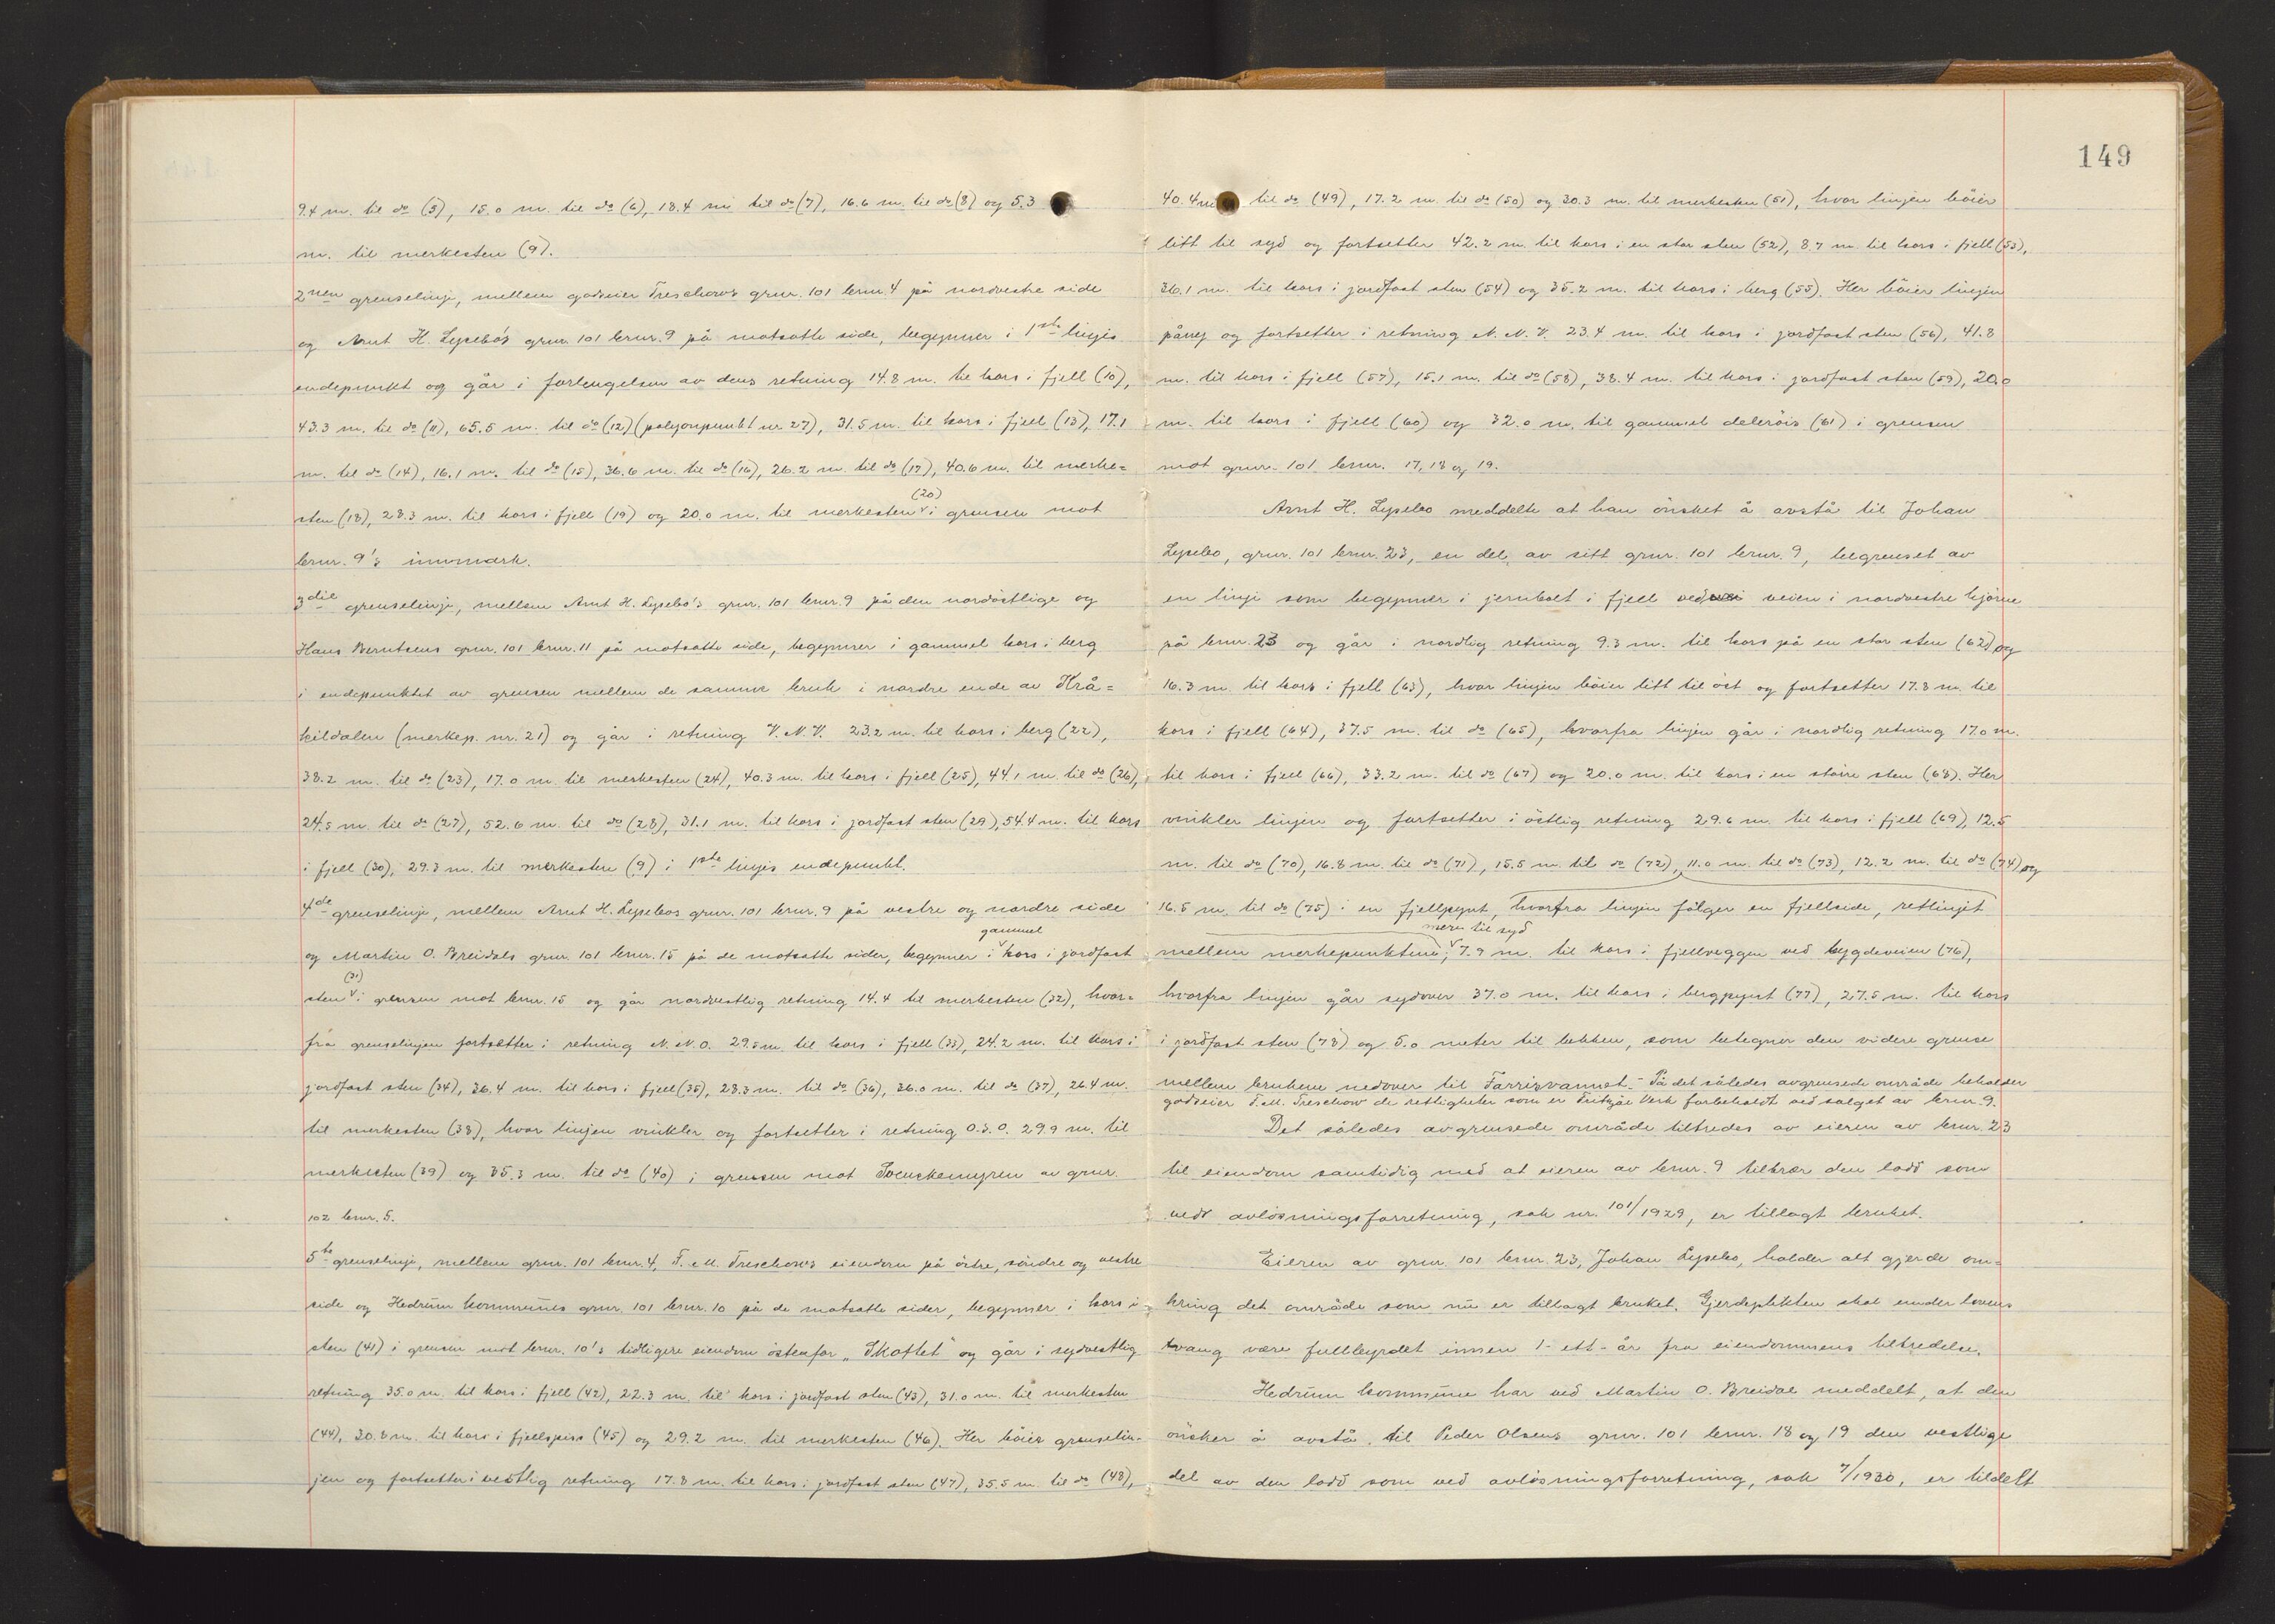 9.4 m. til do (5), 15.0 m. til do (6), 18.4 m til do (7), 16.6 m. til do (8) og 5.3
m. til merkesten (9).
2nen grenselinje, mellem godseier Treschows grnr. 101 brnr. 4 på nordvestre side
og Arnt H. Lysebo's grnr. 101 brnr. 9 på motsatte side, begynner i 1ste linjes
endepunkt og går i forlengelsen av dens retning 14.8 m. til kors i fjell (10),
43.3 m. til do (11), 65.5 m. til do (12) (polygonpunkt nr. 27), 31.5 m. til kors i fjell (13), 17.1
m. til do (14), 16.1 m. til do (15), 36.6 m. til do (16), 26.2 m. til do (17), 40.6 m. til merke=
sten (18), 28.3 m. til kors i fjell (19) og 20.0 m. til merkesten (20) i grensen mot
brnr. 9's innmark.
3die grenselinje, mellem Arnt H. Lysebo's grnr. 101 brnr. 9 på den nordöstlige og
Hans Berntsens grnr. 101 brnr. 11 på motsatte side, begynner i gammel kors i berg
i endepunktet av grensen mellem de samme bruk i nordre ende av Krå=
kildalen (merkep. nr. 21) og går i retning V.N.V. 23.2 m. til kors i berg (22),
38.2 m. til do (23), 17.0 m. til merkesten (24), 40.3 m. til kors i fjell (25), 44.1 m. til do (26),
24.5 m. til do (27), 52.6 m. til do (28), 31.1 m. til kors i jordfast sten (29), 54.4 m. til kors
i fjell (30), 29.3 m. til merkesten (9) i 1ste linjes endepunkt.
4de grenselinje, mellem Arnt H. Lysebos grnr. 101 brnr. 9 på vestre og nordre side
og Martin O. Breidals grnr. 101 brnr. 15 på de motsatte sider, begynner i gammel kors i jordfast
sten (31) i grensen mot brnr. 15 og går nordvestlig retning 14.4 til merkesten (32), hvor=
fra grenselinjen fortsetter i retning N.N.O. 29.5 m. til kors i fjell (33), 24.2 m. til kors i
jordfast sten (34), 36.4 m. til kors i fjell (35), 28.3 m. til do (36), 36.0 m. til do (37), 26.4 m.
til merkesten (38), hvor linjen vinkler og fortsetter i retning O.S.O. 29.9 m. til
merkesten (39) og 35.3 m. til do (40) i grensen mot Svenskemyren av grnr.
102 brnr. 5.
5te grenselinje, mellem grnr. 101 brnr. 4, F. M. Treschow's eiendom på östre, söndre og vestre
side og Hedrum kommunes grnr. 101 brnr. 10 på de motsatte sider, begynner i kors i
sten (41) i grensen mot brnr. 10's tidligere eiendom östenfor „Skottet" og går i sydvestlig
retning 35.0 m. til kors i fjell (42), 22.3 m. til kors i jordfast sten (43), 31.0 m. til merkesten
(44), 30.8 m. til kors i fjellspiss (45) og 29.2 m. til merkesten (46). Her böier grenselin-
jen og fortsetter i vestlig retning 17.8 m. til kors i jordfast sten (47), 35.5 m. til do (48),
149
40.4 m til do (49), 17.2 m. til do (50) og 30.3 m. til merkesten (51), hvor linjen böier
litt til syd og fortsetter 42.2 m. til kors i en stor sten (52), 8.7 m. til kors i fjell (53),
36.1 m. til kors i jordfast sten (54) og 35.2 m. til kors i berg (55). Her böier linjen
påny og fortsetter i retning N.N.V. 23.4 m. til kors i jordfast sten (56), 41.8
m. til kors i fjell (57), 15.1 m. til do (58), 38.4 m. til kors i jordfast sten (59), 20.0
m. til kors i fjell (60) og 32.0 m. til gammel deleröis (61) i grensen
mot grnr. 101 brnr. 17, 18 og 19.
Arnt H. Lysebo meddelte at han önsket å avstå til Johan
Lysebo, grnr. 101 brnr. 23, en del av sitt grnr. 101 brnr. 9, begrenset av
en linje som begynner i jernbolt i fjell ved veien i nordvestre hjörne
på brnr. 23 og går i nordlig retning 9.3 m. til kors på en stor sten (62) og
16.3 m. til kors i fjell (63), hvor linjen böier litt til öst og fortsetter 17.8 m. til
kors i fjell (64), 37.5 m. til do (65), hvorfra linjen går i nordlig retning 17.0 m.
til kors i fjell (66), 33.2 m. til do (67) og 20.0 m. til kors i en större sten (68). Her
vinkler linjen og fortsetter i östlig retning 29.6 m. til kors i fjell (69), 12.5
m. til do (70), 16.8 m. til do (71), 15.5 m. til do (72), 11.0 m. til do (73), 12.2 m. til do (74) og
16.5 m. til do (75) i en fjellpynt, hvorfra linjen fölger en fjellside, retlinjet
mellem merkepunktene; mere til syd 7.9 m. til kors i fjellveggen ved bygdeveien (76),
hvorfra linjen går sydover 37.0 m. til kors i bergpynt (77), 27.5 m. til kors
i jordfast sten (78) og 5.0 meter til bekken, som betegner den videre grense
mellem brukene nedover til Farrisvannet. - På det således avgrensede område beholder
godseier F.M. Treschow de rettigheter som er Fritzöe Verk forbeholdt ved salget av brnr. 9.
Det således avgrensede område tiltredes av eieren av brnr. 23
til eiendom samtidig med at eieren av brnr. 9 tiltrær den lodd som
ved avlösningsforretning, sak nr. 101/1929, er tillagt bruket.
Eieren av grnr. 101 brnr. 23, Johan Lysebo, holder alt gjerde om=
kring det område som nu er tillagt bruket. Gjerdeplikten skal under lovens
tvang være fullbyrdet innen 1 - ett - år fra eiendommens tiltredelse.
Hedrum kommune har ved Martin O. Breidal meddelt, at den
önsker å avstå til Peder Olsens grnr. 101 brnr. 18 og 19 den vestlige
del av den lodd som ved avlösningsforretning, sak 7/1930, er tildelt